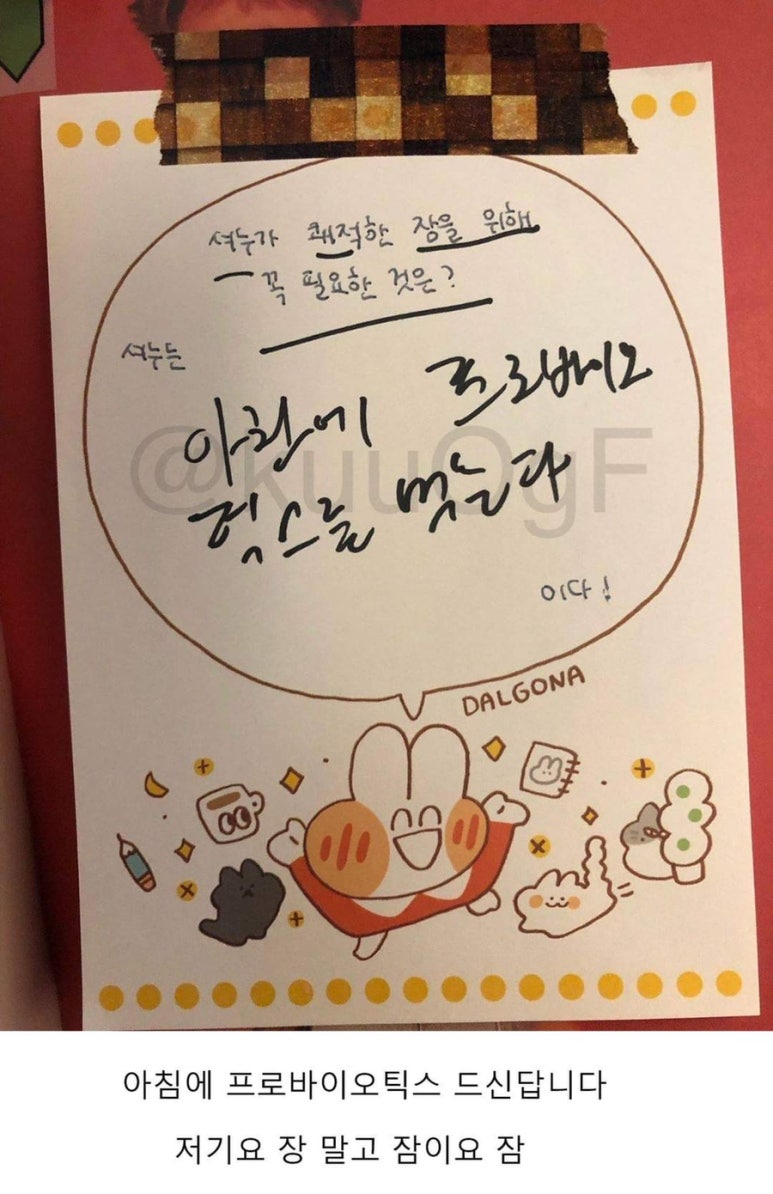 셔누가 쾌적한 장을 위해
꼭 필요한 것은?
셔누는
아침에 프로바이오
틱스를 먹는다
@kuuOgF
이다!
DALGONA
아침에 프로바이오틱스 드신답니다
저기요 장 말고 잠이요 잠